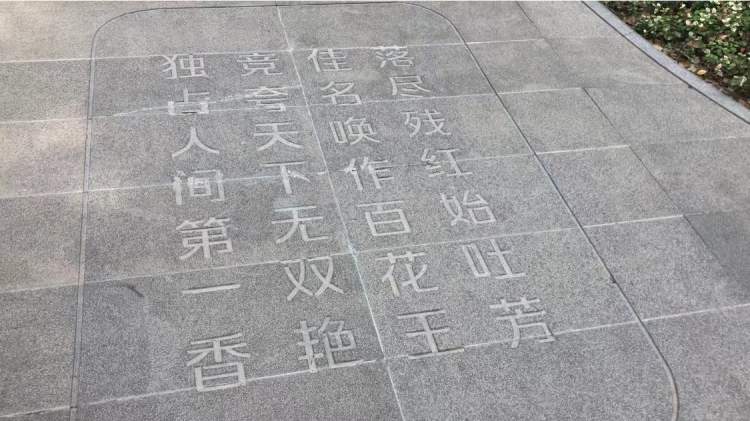 落尽残红始吐芳
佳名唤作百花王
竞夸天下无双艳
独占人间第一香